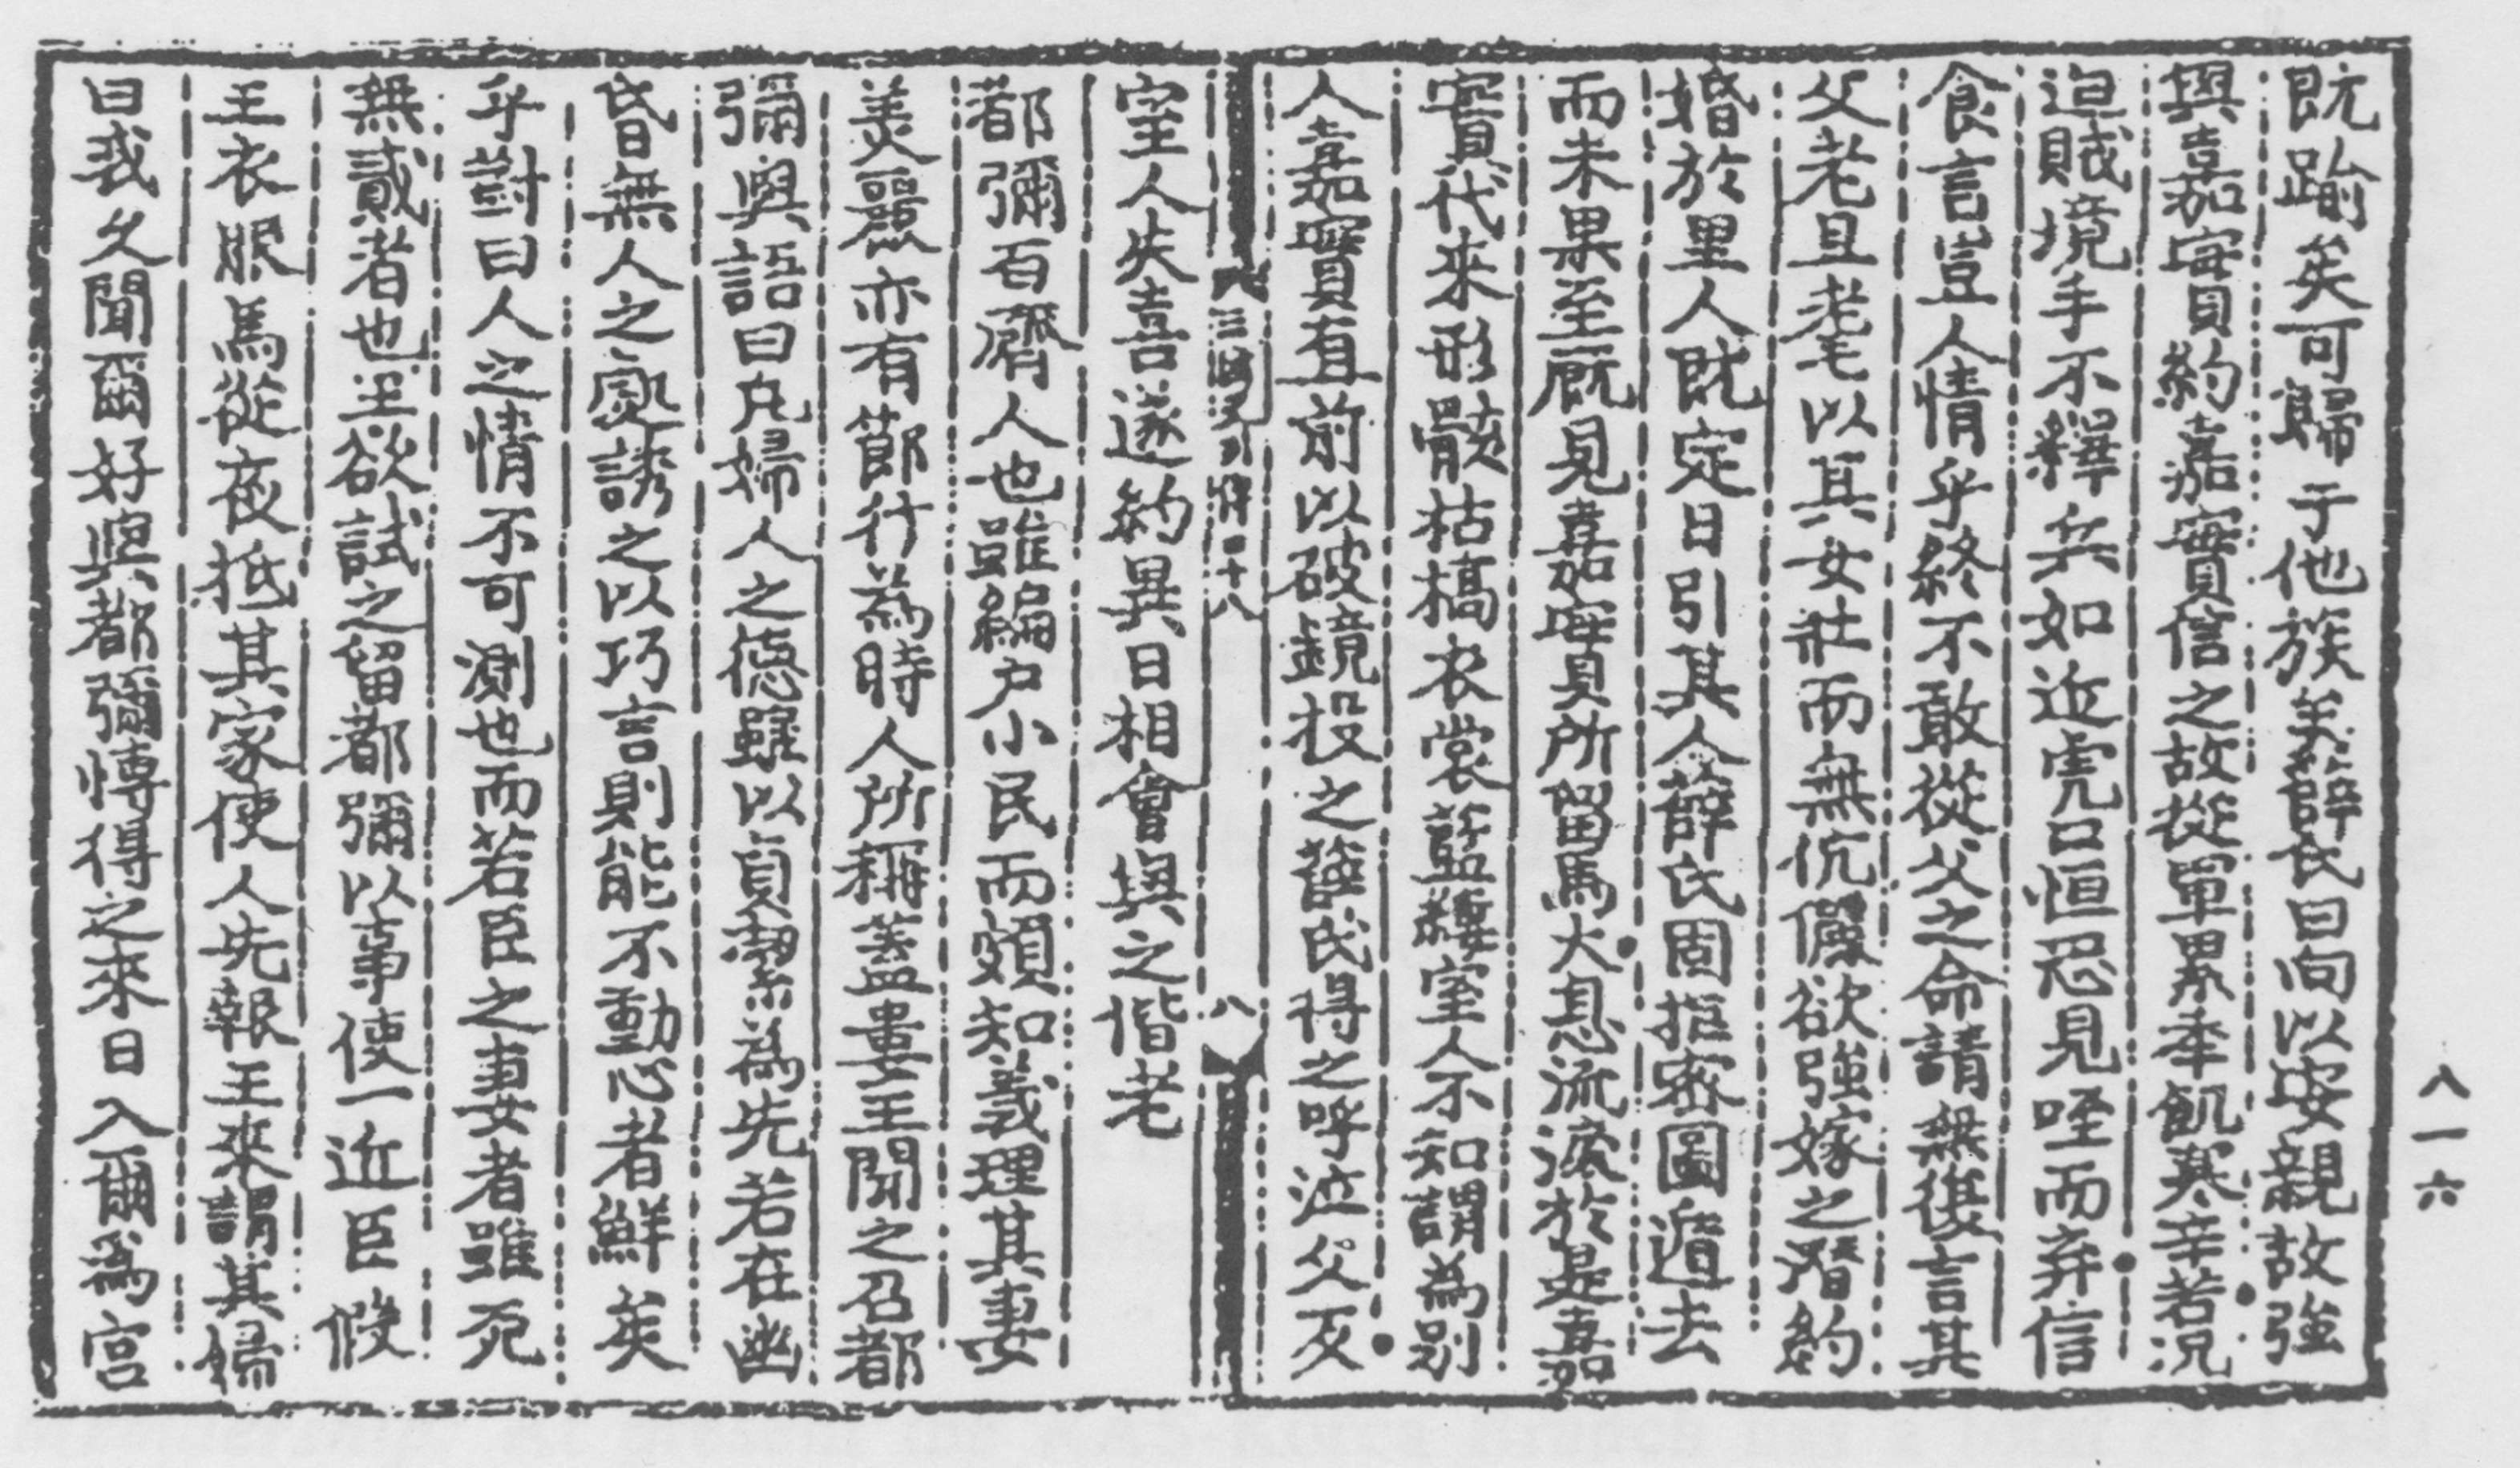 旣踰矣可歸于他族矣薛氏曰向以安親故強
與嘉實約嘉實信之故從軍累年飢寒辛苦況
迫賊境手不釋兵如近虎口恒恐見咥而弃信
食言豈人情乎終不敢從父之命請無復言其
父老且耄以其女壯而無伉儷欲強嫁之潜約
婚於里人旣定日引其人薛氏固拒密圖遁去
而未果至廐見嘉實所留馬大息流淚於是嘉
實代來形骸枯槁衣裳藍縷室人不知謂為別
人嘉實直前以破鏡投之薛氏得之呼泣父及
三國史傳四十八
八
室人失喜遂約異日相會與之偕老
都彌百濟人也雖編户小民而頗知義理其妻
美麗亦有節行為時人所稱蓋婁王聞之召都
彌與語曰凡婦人之德雖以貞潔為先若在幽
昏無人之處誘之以巧言則能不動心者鮮矣
乎對曰人之情不可測也而若臣之妻者雖死
無貳者也王欲試之留都彌以事使一近臣假
王衣服馬從夜抵其家使人先報王來謂其婦
曰我久聞爾好與都彌愽得之來日入爾爲宮
八一六